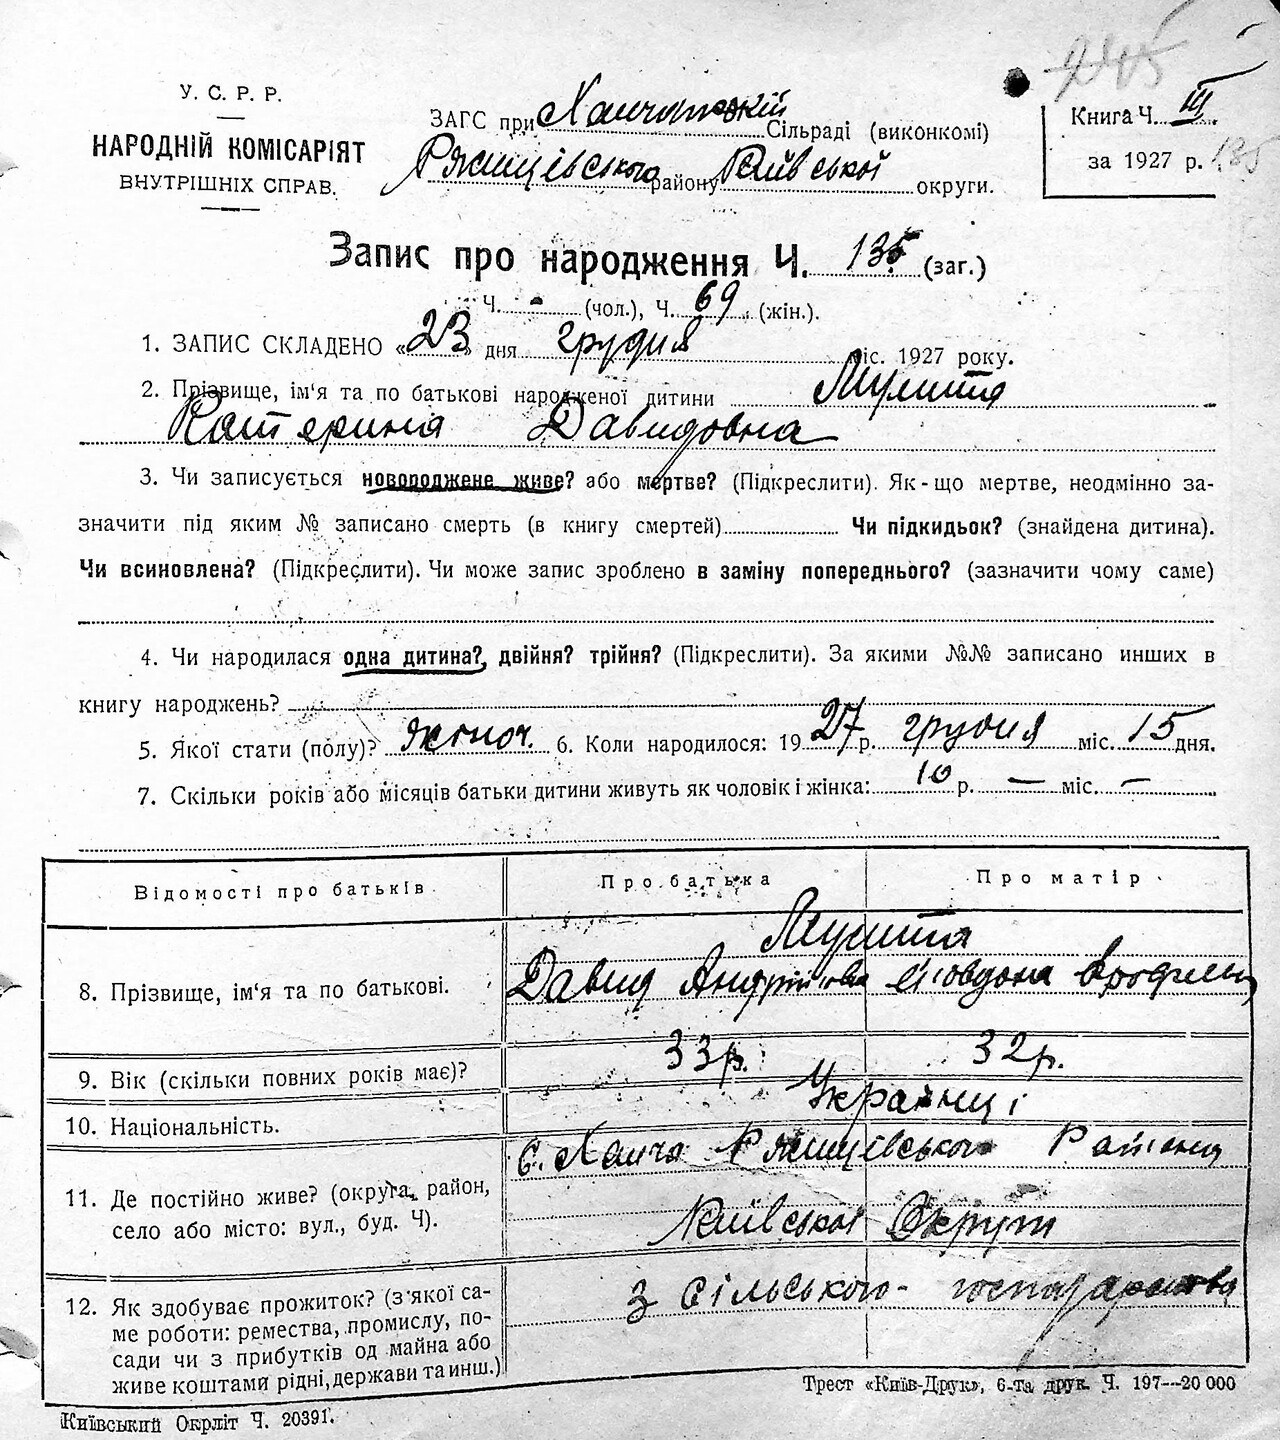 245
У. С. Р. Р.
НАРОДНІЙ КОМІСАРІЯТ
ВНУТРІШНІХ СПРАВ.
ЗАГС при Ханчанській Сільраді (виконкомі)
Ржищівського району Київської округи.
Книга Ч. III
за 1927 р. 135
Запис про народження Ч. 135 (заг.)
Ч. - (чол.), Ч. 69 (жін.).
1. ЗАПИС СКЛАДЕНО «23» дня грудня міс. 1927 року.
2. Прізвище, ім'я та по батькові народженої дитини
Катерина Давидовна
3. Чи записується новороджене живе? або мертве? (Підкреслити). Як-що мертве, неодмінно за-
значити під яким № записано смерть (в книгу смертей) Чи підкидьок? (знайдена дитина).
Чи всиновлена? (Підкреслити). Чи може запис зроблено в заміну попереднього? (зазначити чому саме)
4. Чи народилася одна дитина?, двійня? трійня? (Підкреслити). За якими №№ записано инших в
книгу народжень?
5. Якої стати (полу)? жіноч. 6. Коли народилося: 1927 р. грудня міс. 15 дня.
7. Скільки років або місяців батьки дитини живуть як чоловік і жінка: 10 р. — міс. —
Відомості про батьків. Про батька Про матір
8. Прізвище, ім'я та по батькові. Давид Андрійов
9. Вік (скільки повних років має)? 33 р. 32 р.
10. Національність. Українці
11. Де постійно живе? (округа, район,
село або місто: вул., буд. Ч).
с. Ханча Ржищівського Району
Київської Округи
12. Як здобуває прожиток? (з'якої са-
ме роботи: ремества, промислу, по-
сади чи з прибутків од майна або
живе коштами рідні, держави та инш.)
З сільського-господарства
Київський Окрліт Ч. 20391.
Трест «Київ-Друк», 6-та друк. Ч. 197—20 000